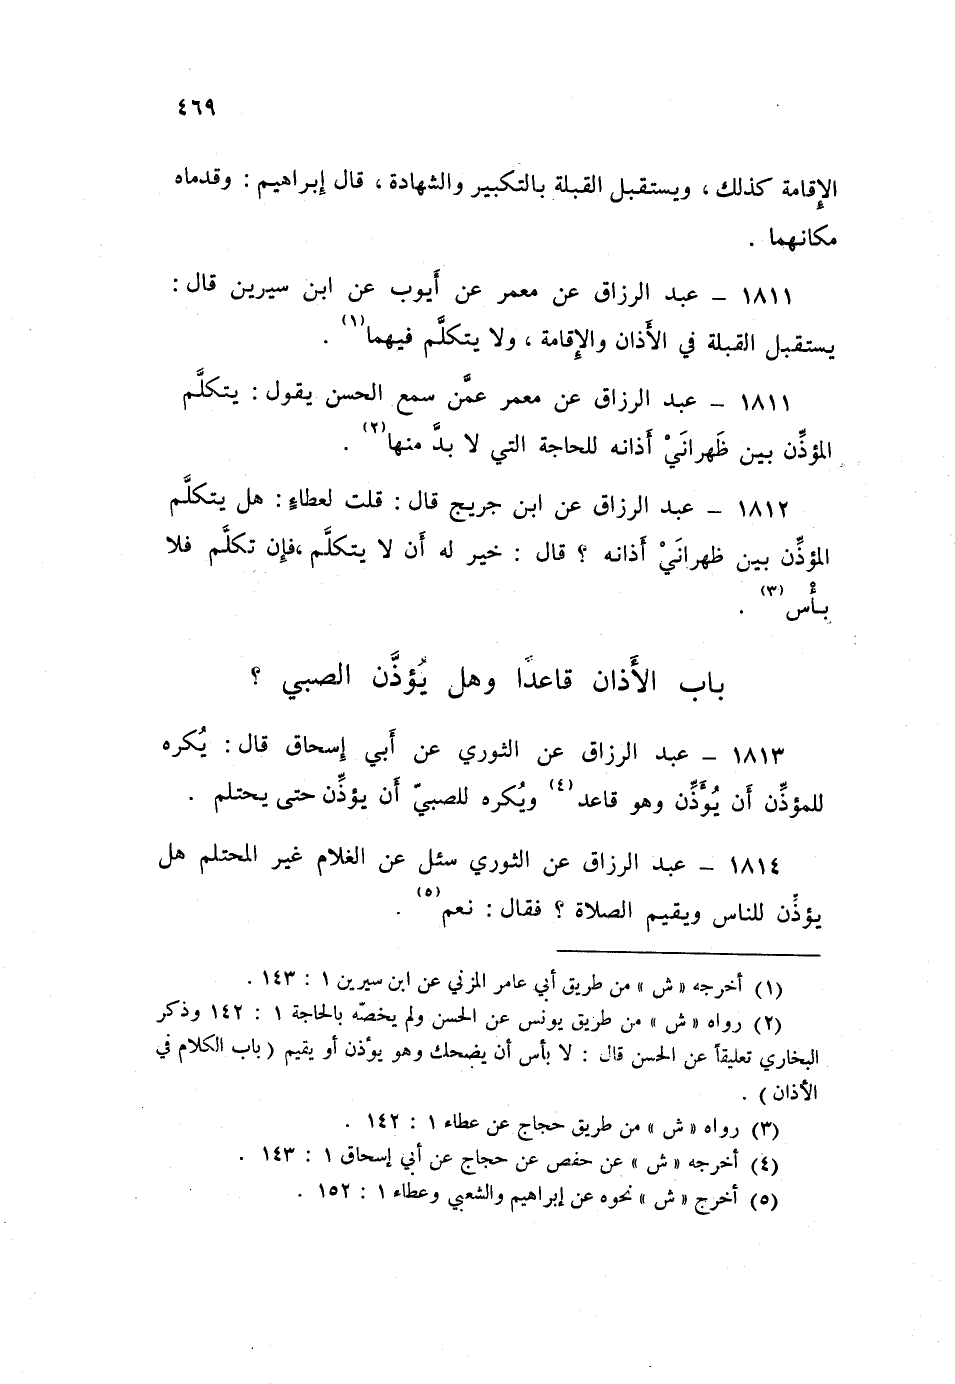 ٤٦٩
الإقامة كذلك ، ويستقبل القبلة بالتكبير والشهادة ، قال إبراهيم : وقدماه
مكانهما .
١٨١١ – عبد الرزاق عن معمر عن أيوب عن ابن سيرين قال :
يستقبل القبلة في الأذان والإقامة ، ولا يتكلَّم فيهما(١) .
١٨١١ – عبد الرزاق عن معمر عمَّن سمع الحسن يقول : يتكلَّم
المؤذِّن بين ظَهرانَيْ أذانه للحاجة التي لا بدَّ منها(٢) .
١٨١٢ – عبد الرزاق عن ابن جريج قال : قلت لعطاءٍ : هل يتكلَّم
المؤذِّن بين ظهرانَيْ أذانه ؟ قال : خير له أن لا يتكلَّم ،فإن تكلَّم فلا
بأْس(٣) .
باب الأَذان قاعدًا وهل يُؤذَّن الصبي ؟
١٨١٣ – عبد الرزاق عن الثوري عن أَبي إسحاق قال : يُكره
للمؤذِّن أَن يُؤَذِّن وهو قاعد(٤) ويُكره للصبيّ أَن يؤذِّن حتى يحتلم .
١٨١٤ – عبد الرزاق عن الثوري سئل عن الغلام غير المحتلم هل
يؤذِّن للناس ويقيم الصلاة ؟ فقال : نعم(٥) .
(١) أخرجه « ش » من طريق أبي عامر المزني عن ابن سيرين ١ : ١٤٣ .
(٢) رواه « ش » من طريق يونس عن الحسن ولم يخصّه بالحاجة ١ : ١٤٢ وذكر
البخاري تعليقاً عن الحسن قال : لا بأس أن يضحك وهو يؤذن أو يقيم ( باب الكلام في
الأذان ) .
(٣) رواه « ش » من طريق حجاج عن عطاء ١ : ١٤٢ .
(٤) أخرجه « ش » عن حفص عن حجاج عن أبي إسحاق ١ : ١٤٣ .
(٥) أخرج « ش » نحوه عن إبراهيم والشعبي وعطاء ١ : ١٥٢ .